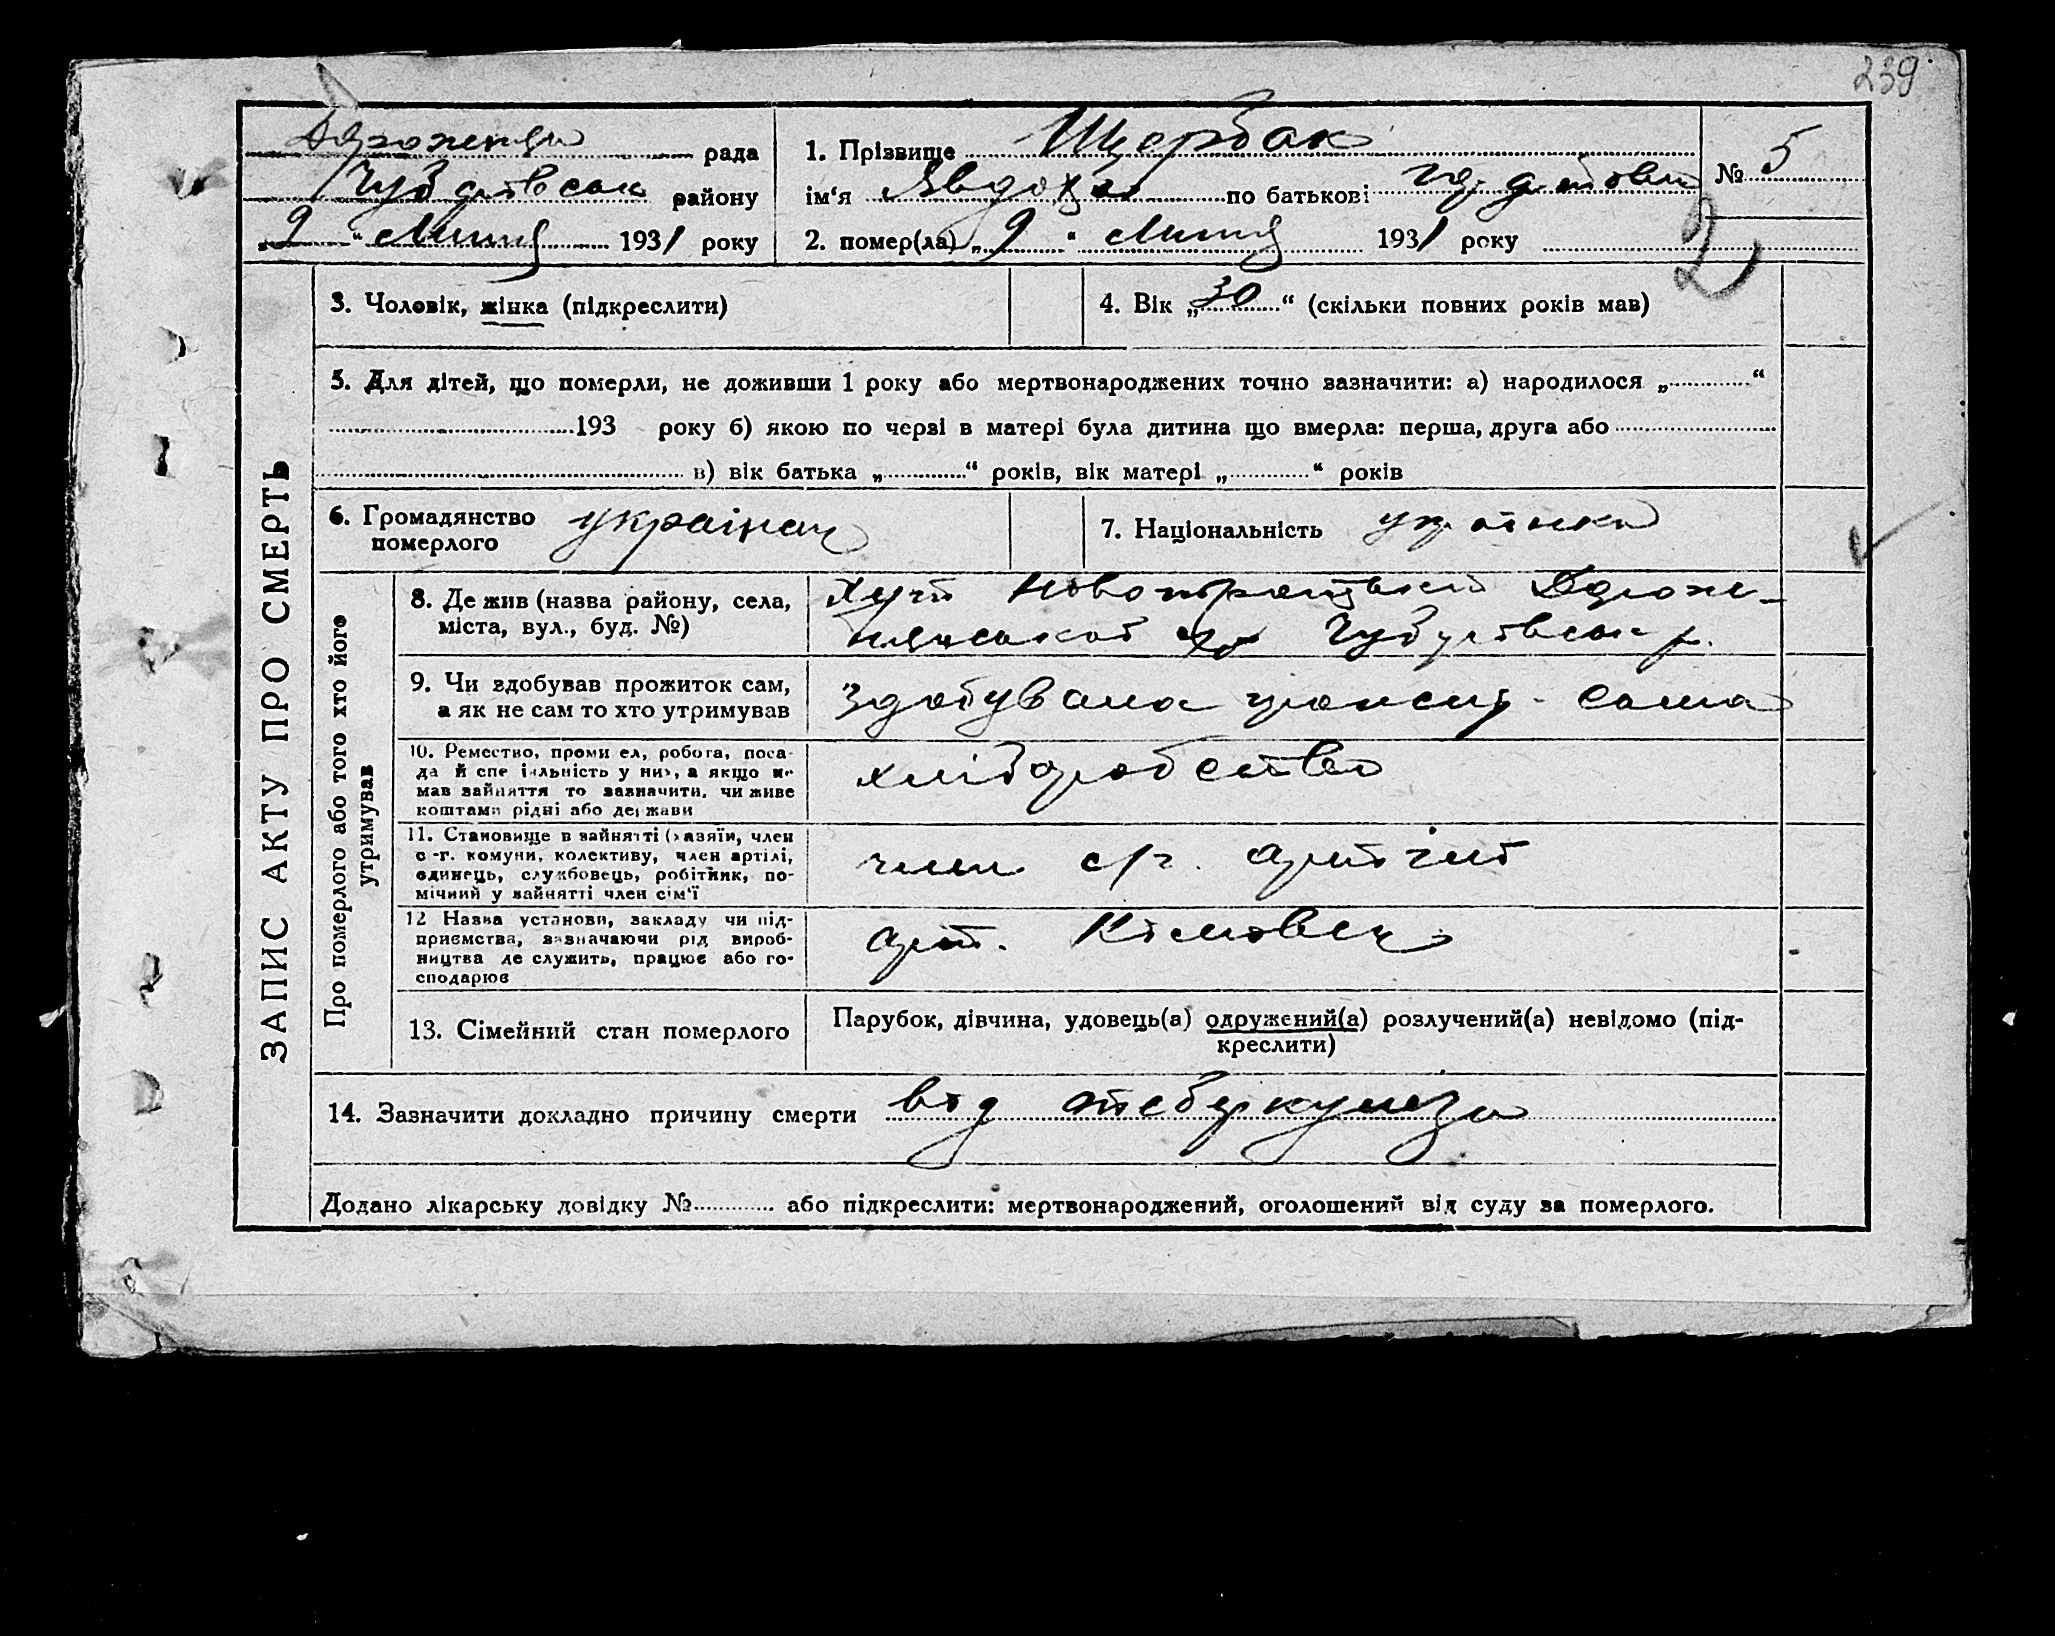 239
рада
району
„9“ Липня 1931 року
1. Прізвище Щербак
ім‘я Явдоха по батькові
№ 5
2. помер(ла) „9“ Липня 1931 року
2
ЗАПИС АКТУ ПРО СМЕРТЬ
3. Чоловік, жінка (підкреслити)
4. Вік „30“ (скільки повних років мав)
5. Для дітей, що померли, не доживши 1 року або мертвонароджених точно зазначити: а) народилося „ “
193 року б) якою по черзі в матері була дитина що вмерла: перша, друга або
в) вік батька „ “ років, вік матері „ “ років
6. Громадянство
померлого
7. Національність українка
Про померлого або того хто його
утримував
8. Де жив (назва району, села,
міста, вул., буд. №)
Хут
р.
9. Чи здобував прожиток сам,
а як не сам то хто утримував
здобувала сама
10. Ремество, промисел, робота, поса-
да й спеціяльність у них, а якщо не
мав зайняття то зазначити, чи живе
коштами рідні або держави
хліборобство
11. Становище в зайнятті (хазяїн, член
с.-г. комуни, колективу, член артілі,
одинець, службовець, робітник, по-
мічний у зайнятті член сім‘ї
член с/г. артілі
12 Назва установи, закладу чи під-
приємства, зазначаючи рід вироб-
ництва де служить, працює або го-
сподарює
арт.
13. Сімейний стан померлого
Парубок, дівчина, удовець(а) одружений(а) розлучений(а) невідомо (під-
креслити)
14. Зазначити докладно причину смерти від теберкульоза
Додано лікарську довідку № або підкреслити: мертвонароджений, оголошений від суду за померлого.